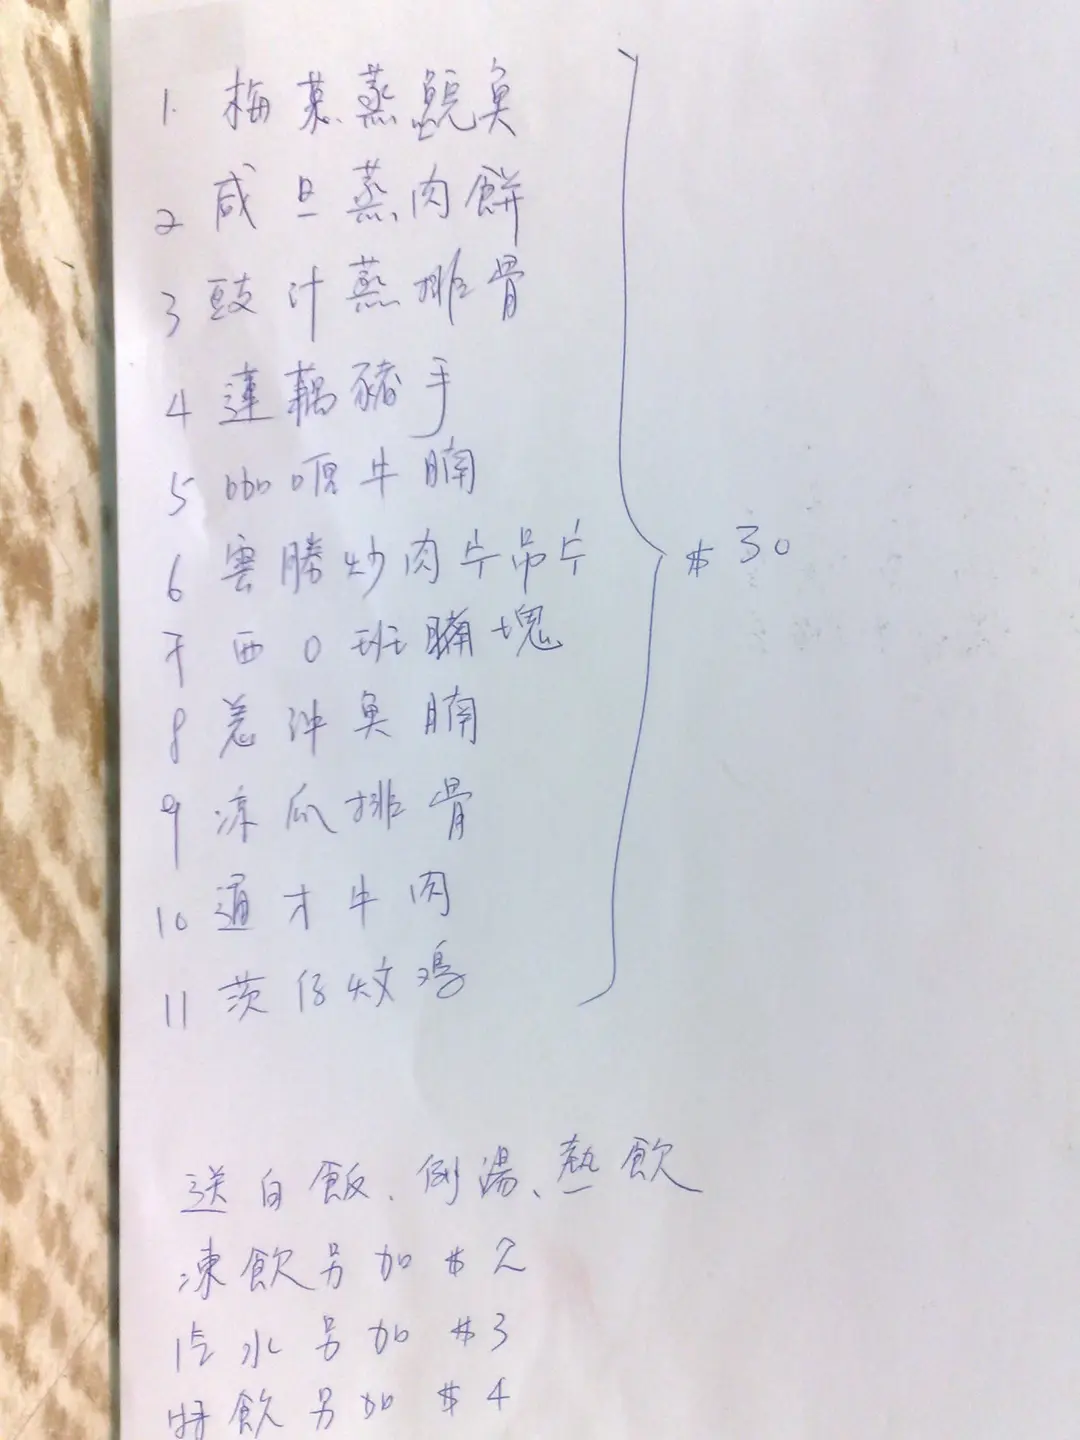 1. 梅菜蒸鯇魚
2 咸旦蒸肉餅
3 豉汁蒸排骨
4 蓮藕豬手
5 咖喱牛腩
6 雲勝炒肉片吊片
7 西0班腩塊
8 羌沖魚腩
9 凉瓜排骨
10 通才牛肉
11 茨仔炆鸡
$30
送白飯、例湯、熱飲
凍飲另加$2
汽水另加$3
特飲另加$4